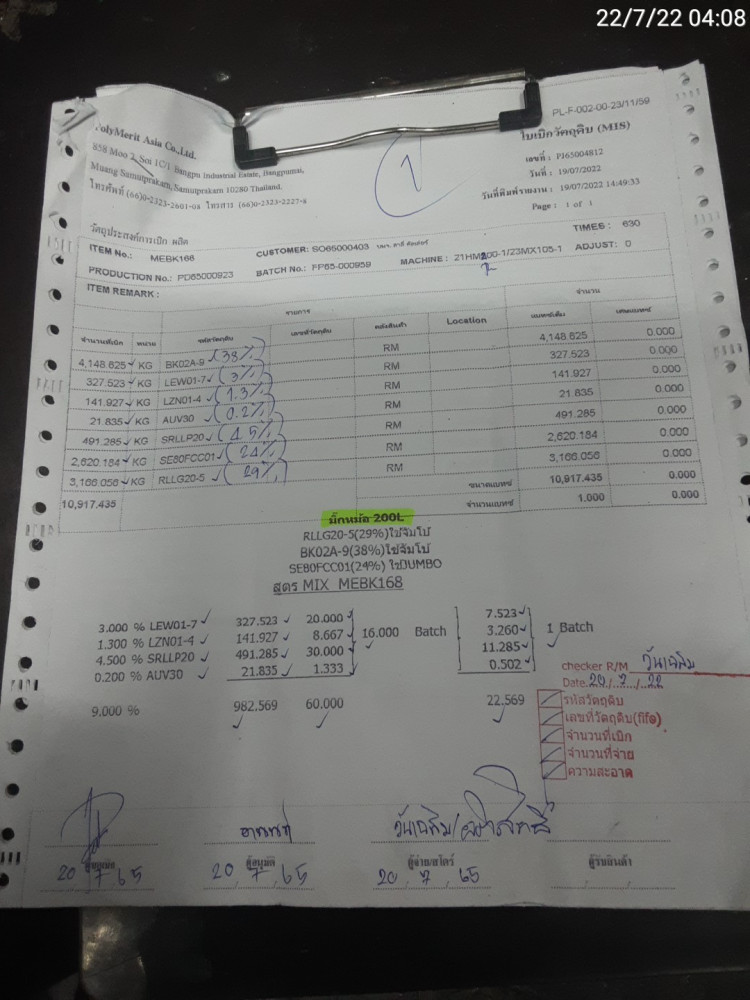 22/7/22 04:08
PL-F-002-00-23/11/59
PolyMerit Asia Co.,Ltd.
858 Moo 2, Soi 1C/1 Bangpu Industrial Estate, Bangpumai,
Muang Samutprakarn, Samutprakarn 10280 Thailand.
โทรศัพท์ (66)0-2323-2601-03 โทรสาร (66)0-2323-2227-8
1
ใบเบิกวัตถุดิบ (MIS)
เลขที่ : PI65004812
วันที่ : 19/07/2022
วันที่พิมพ์รายงาน : 19/07/2022 14:49:33
Page : 1 of 1
วัตถุประสงค์การเบิก ผลิต
TIMES : 630
ITEM No.: MEBK168 CUSTOMER: SO65000403
MACHINE : 21HM200-1/23MX105-1 ADJUST: 0
PRODUCTION No.: PD65000923 BATCH No.: FP65-000959
ITEM REMARK :
รายการ จำนวน
จำนวนที่เบิก หน่วย รหัสวัตถุดิบ เลขที่วัตถุดิบ คลังสินค้า Location แบทช์เต็ม เศษแบทช์
4,148.625 KG BK02A-9 (38%) RM 4,148.625 0.000
327.523 KG LEW01-7 (3%) RM 327.523 0.000
141.927 KG LZN01-4 (1.3%) RM 141.927 0.000
21.835 KG AUV30 (0.2%) RM 21.835 0.000
491.285 KG SRLLP20 (4.5%) RM 491.285 0.000
2,620.184 KG SE80FCC01 (24%) RM 2,620.184 0.000
3,166.056 KG RLLG20-5 (29%) RM 3,166.056 0.000
10,917.435 ขนาดแบทช์ 10,917.435 0.000
จำนวนแบทช์ 1.000 0.000
มิ๊กหม้อ 200L
RLLG20-5(29%)ใช้จัมโบ้
BK02A-9(38%)ใช้จัมโบ้
SE80FCC01(24%) ใช้JUMBO
สูตร MIX MEBK168
3.000 % LEW01-7 327.523 20.000 7.523
1.300 % LZN01-4 141.927 8.667 16.000 Batch 3.260 1 Batch
4.500 % SRLLP20 491.285 30.000 11.285
0.200 % AUV30 21.835 1.333 0.502
9.000 % 982.569 60.000 22.569
checker R/M วันเฉลิม
Date 20/7/22
รหัสวัตถุดิบ
เลขที่วัตถุดิบ(fifo)
จำนวนที่เบิก
จำนวนที่จ่าย
ความสะอาด
วันเฉลิม/
ผู้อนุมัติ ผู้จ่าย/สโตร์ ผู้รับสินค้า
20 7 65 20 7 65 20 7 65